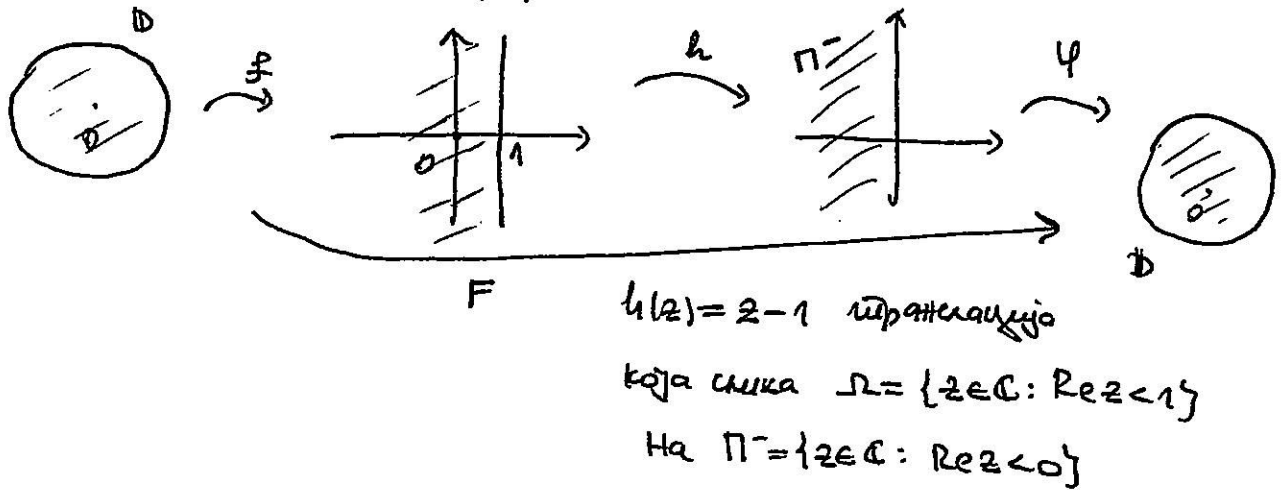 D f h Π⁻ φ
0 0 1 0
D
F
h(z) = z - 1 транслација
која слика Ω = {z ∈ ℂ: Re z < 1}
На Π⁻ = {z ∈ ℂ: Re z < 0}